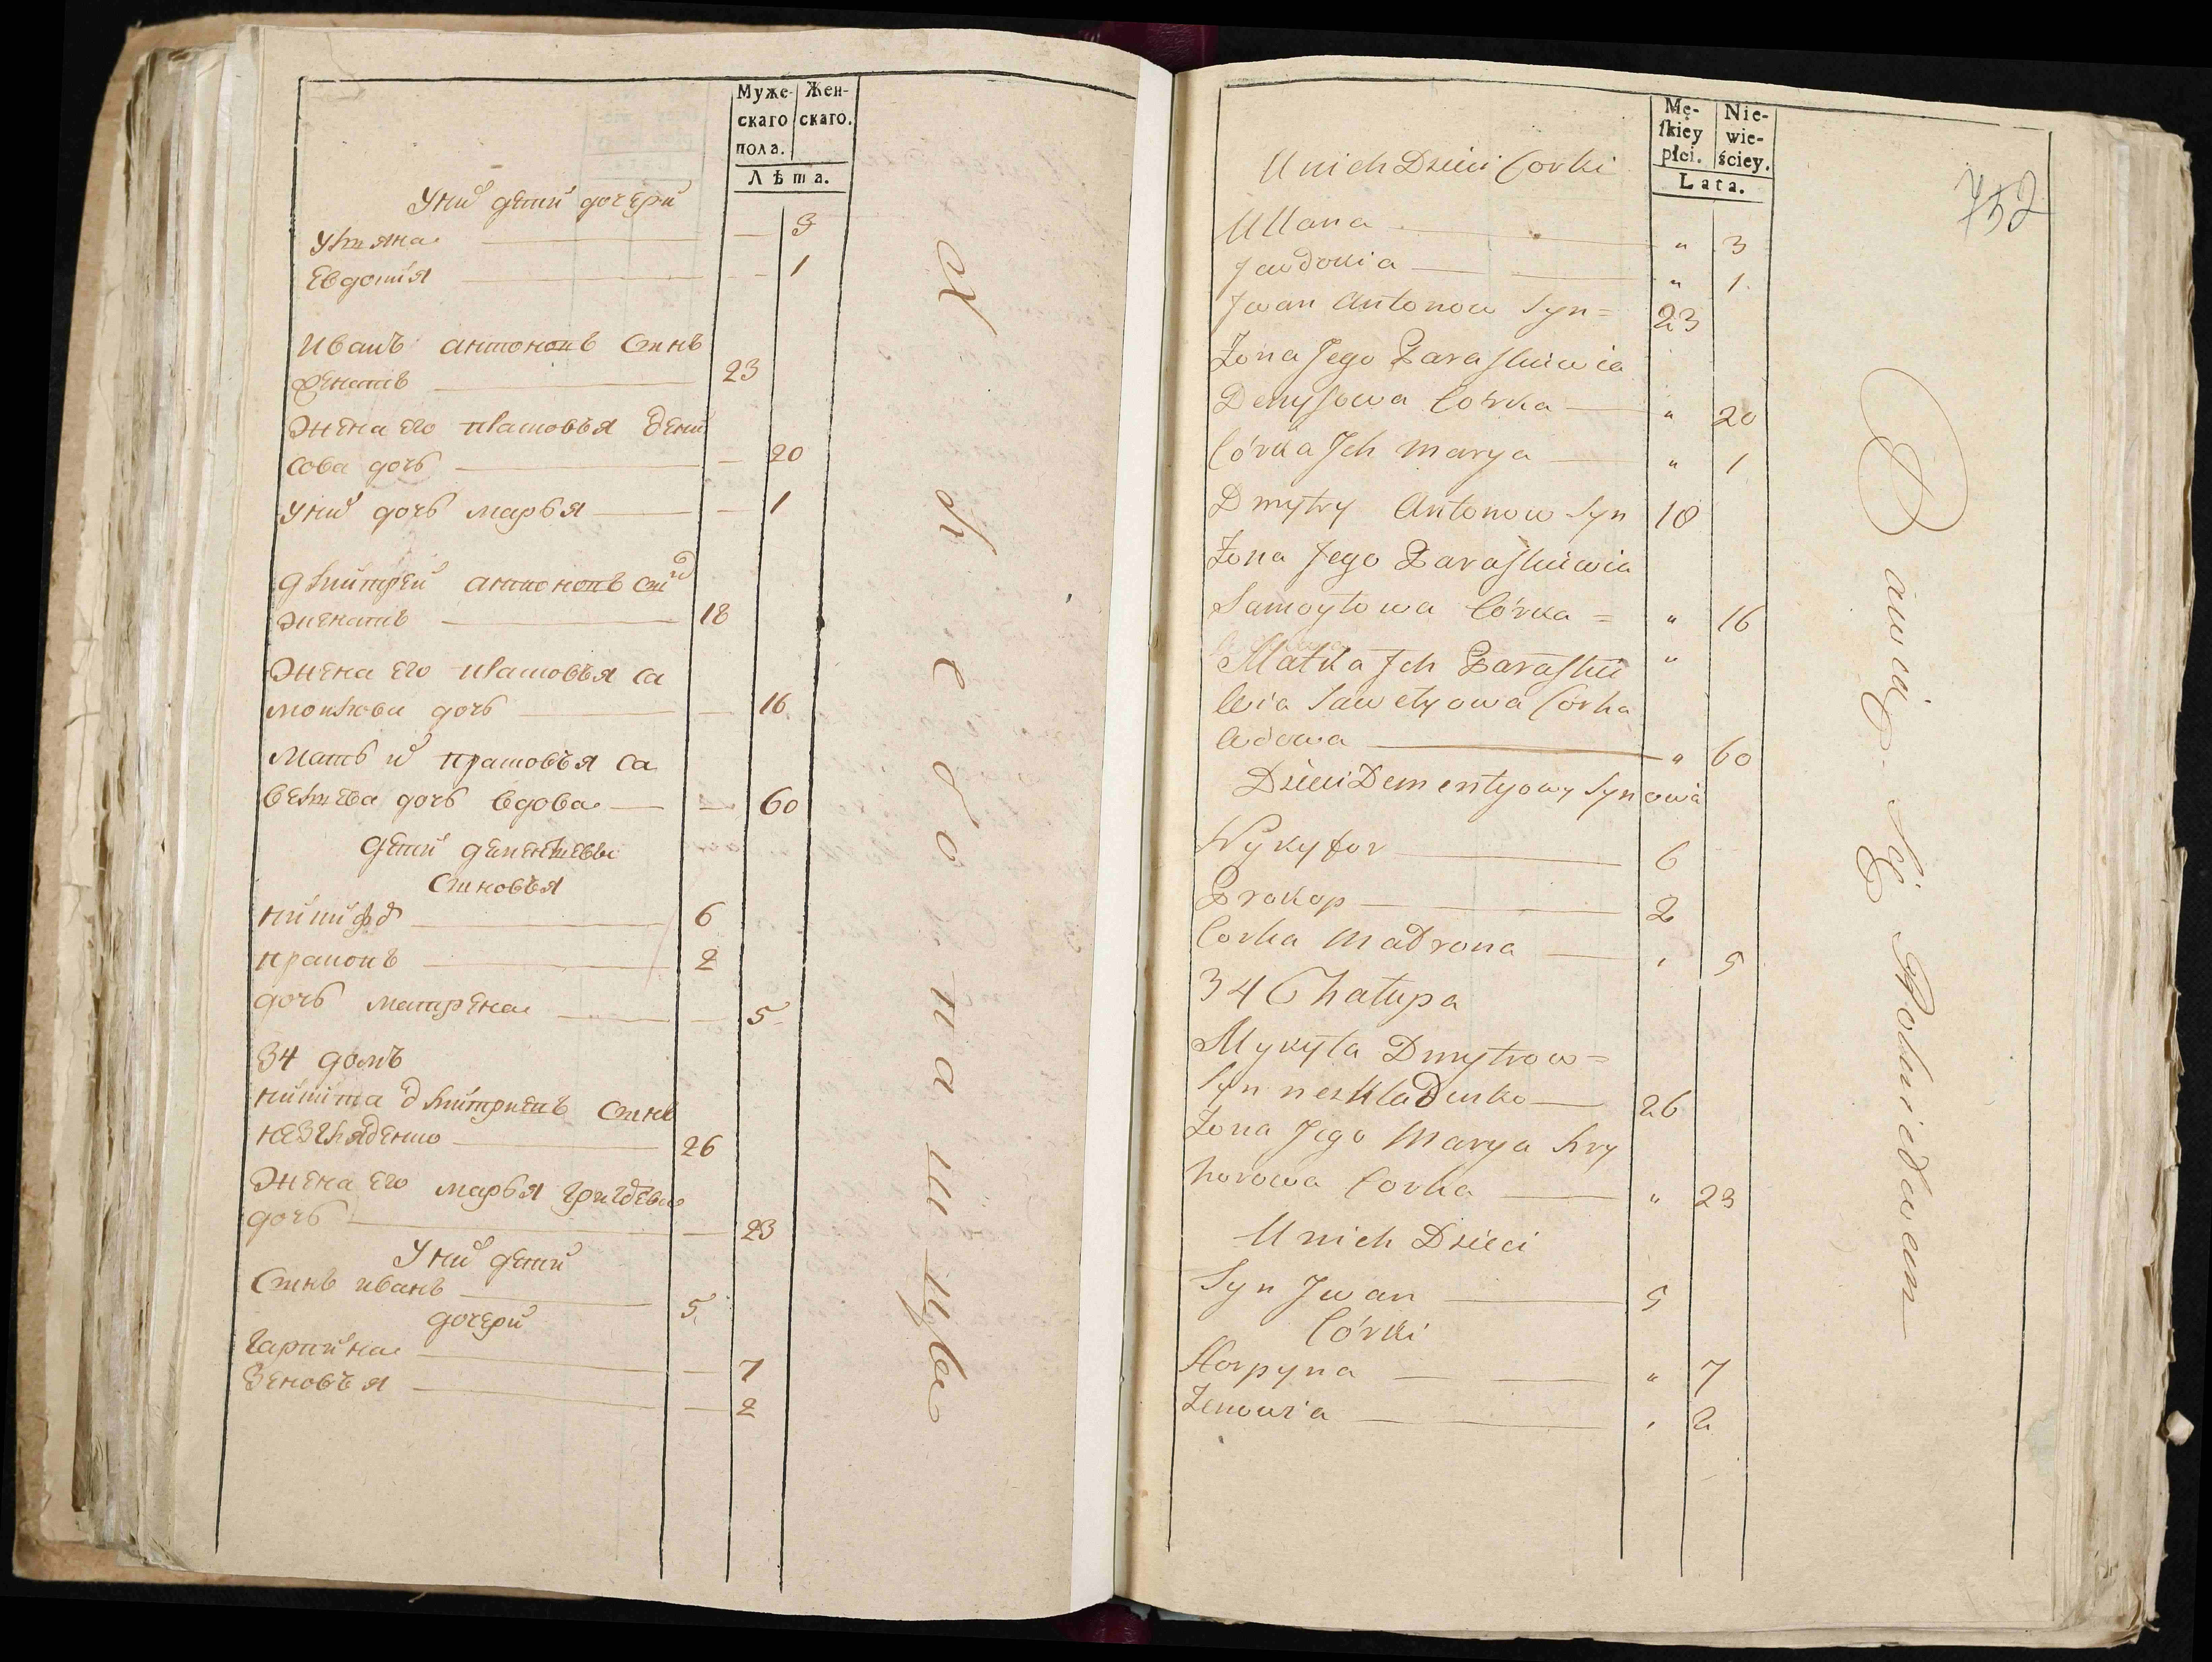 Муже-
скаго
пола.
Жен-
скаго.
Лѣта.
У них дети дочери
Уляна — 3
Евдокия — 1
Иванъ антоновъ сынъ
женатъ 23
Жена его парасковья дени
сова дочь — 20
У них дочь марья — 1
дмитрей антоновъ сын
женатъ 18
Жена его парасковья са
мойлова дочь — 16
Мать их прасковья са
вельева дочь вдова — 60
дети дементьевы
сыновья
никифор 6
прокопъ 2
дочь матрена — 5
34 домъ
никита дмитриевъ сынъ
незгляденко 26
Жена его марья григорева
дочь — 23
У них дети
Сынъ иванъ 5
дочери
Гарпина — 7
Зеновья — 2
Mę-
skiey
płci.
Nie-
wie-
ściey.
Lata.
752
U nich Dzieci Corki
Ullana " 3
Jawdokia " 1
Jwan Antonow Syn = 23
Żona Jego Paraskiewia
Denysowa Córka " 20
Córka Jch Marya " 1
Dmytry Antonow Syn 18
Żona Jego Paraskiewia
Samoyłowa Córka = " 16
Matka Jch Paraski "
wia Sawełyowa Corka
wdowa " 60
Dzieci Dementyowy Synowia
Nykyfor 6
Prokop 2
Corka Madrona " 5
34 Chałupa
Mykyta Dmytrow =
Syn nezhladenko 26
Żona Jego Marya hry
horowa Corka " 23
U nich Dzieci
Syn Jwan 5
Córki
Horpyna " 7
Zenowia " 2